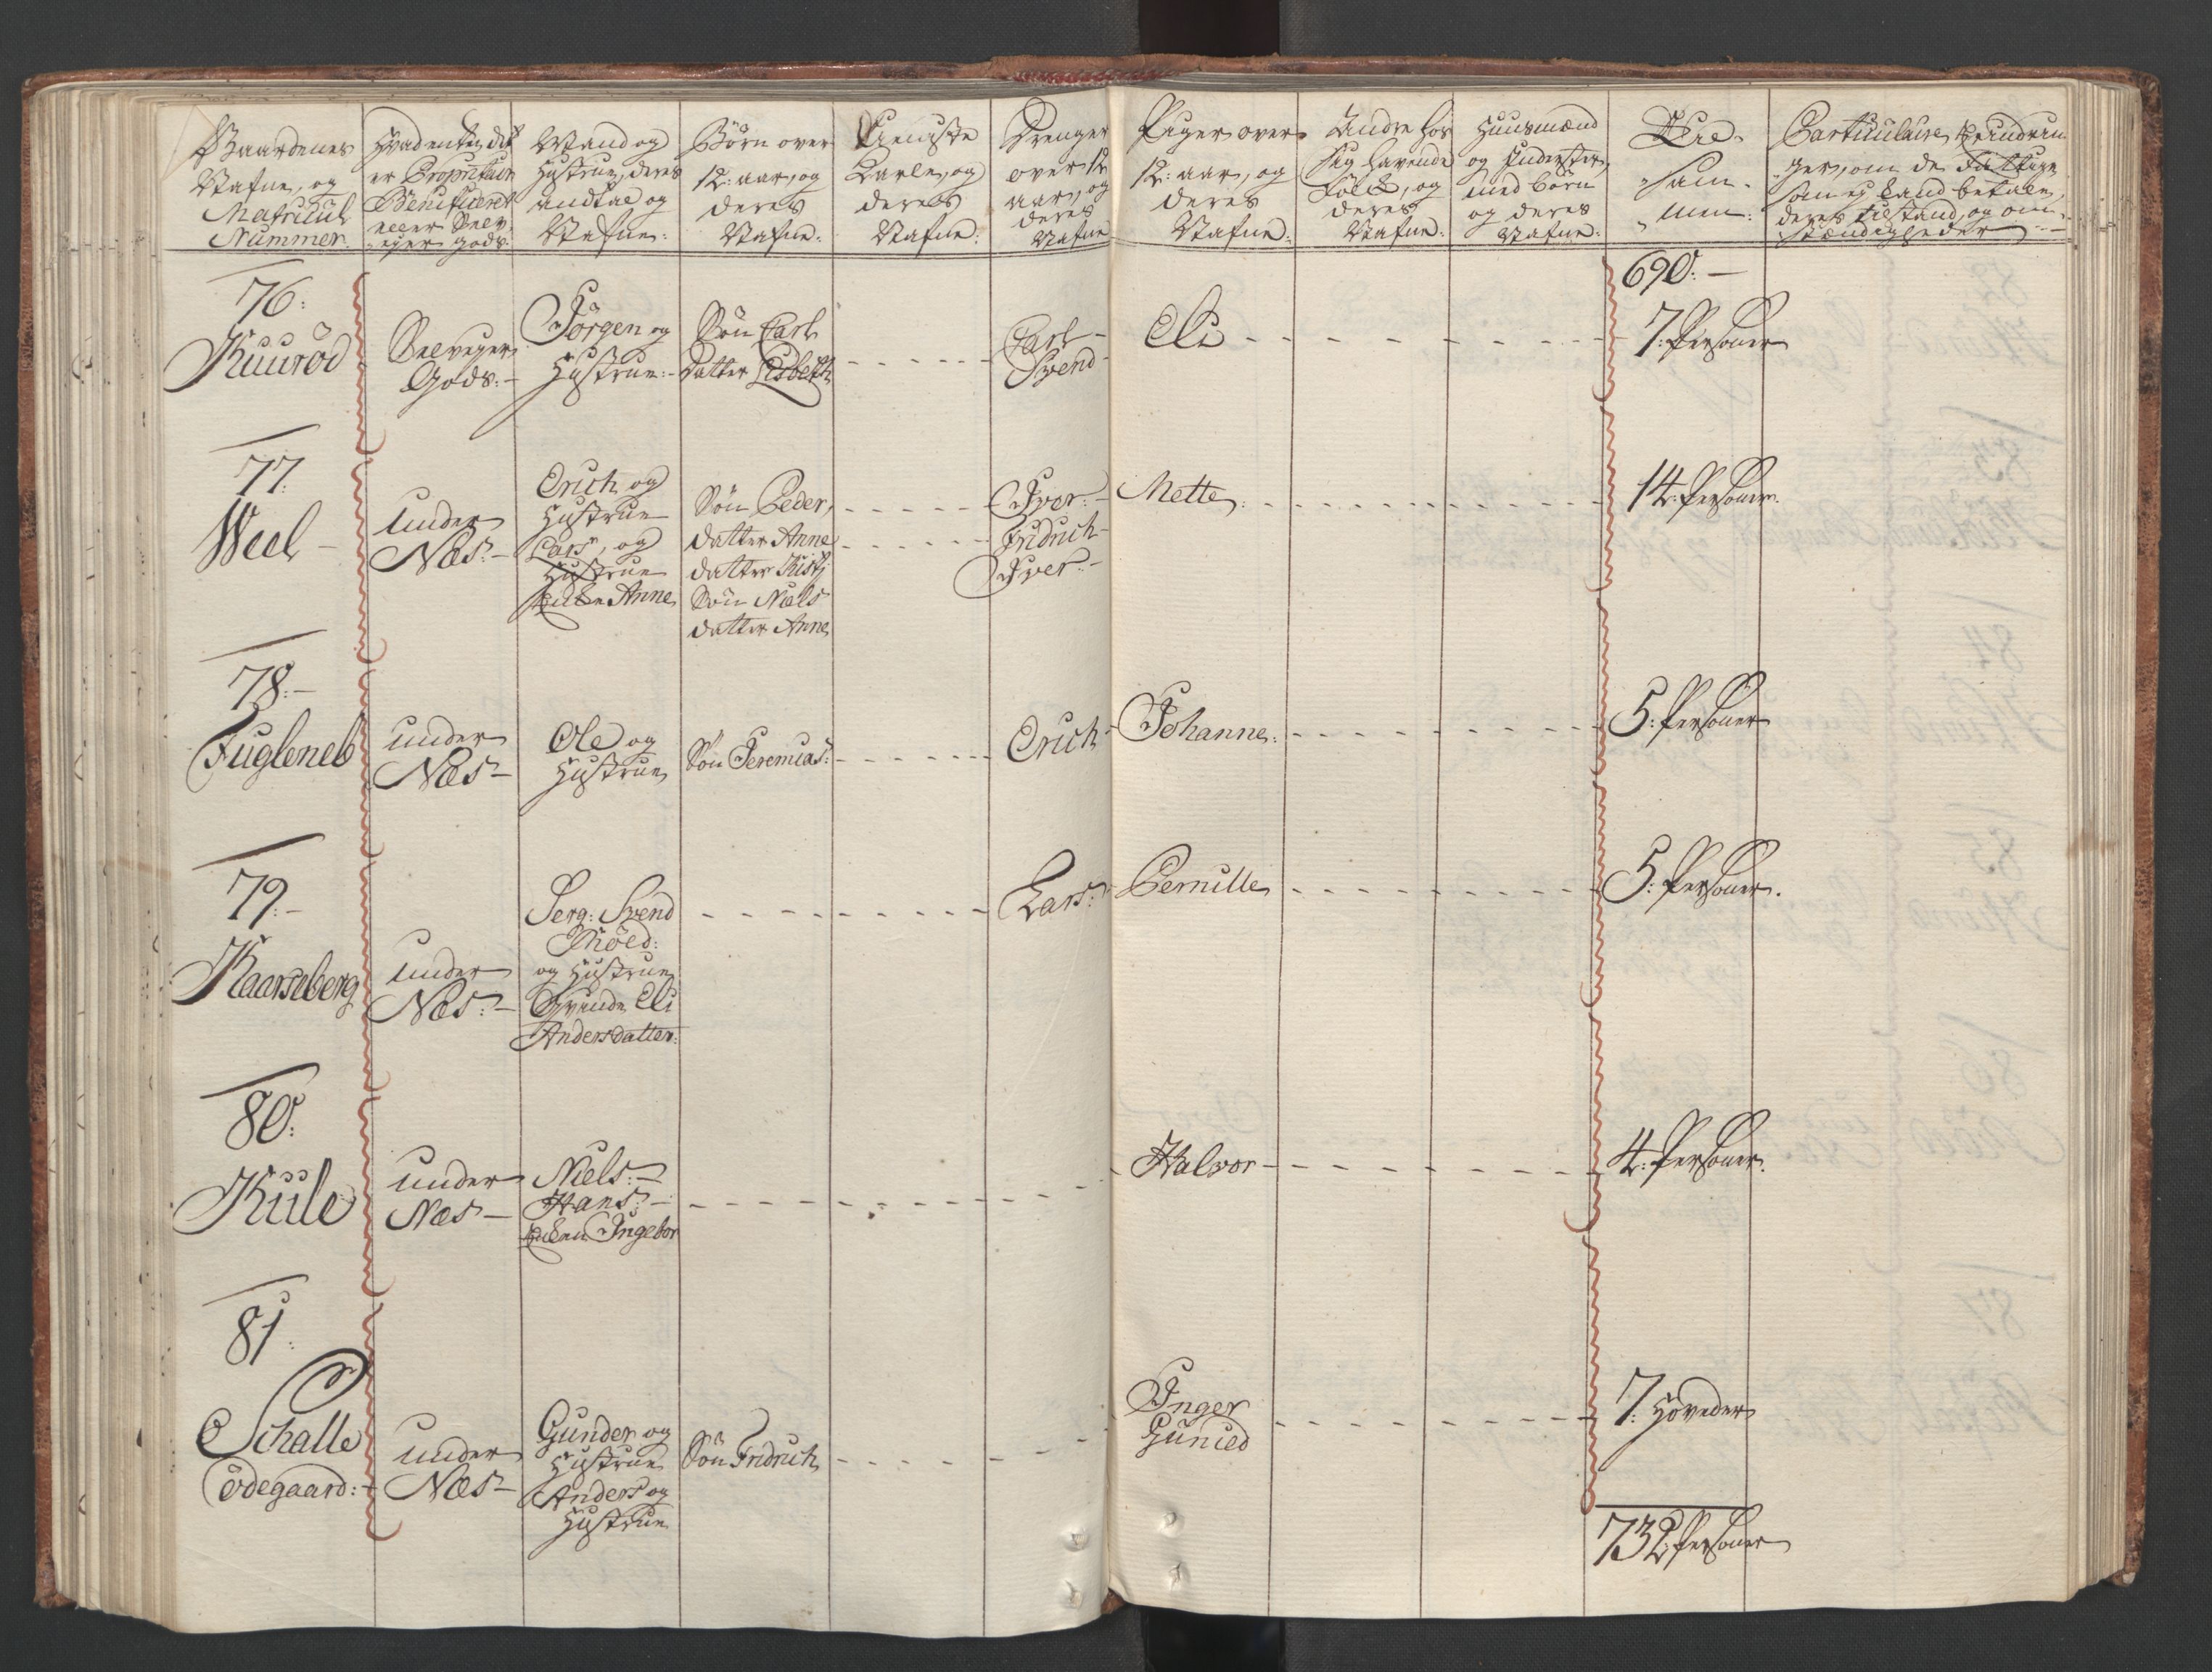 Gaardenes
Nafne, og
Matricul
Nummer.
Hvad enten det
er Proprietair
Beneficeret
eller Selv-
eyer gods.
Mand og
Hustrue, deres
andtal og
Nafne:
Børn over
12: aar, og
deres
Nafne:
Tieniste
Karle, og
deres
Nafne:
Drenger
over 12
aar, og
deres
Nafne
Piger over
12: aar, og
deres
Nafne:
Andre hos
sig havende
Folck, og
deres
Nafne:
Huusmænd
og Inderster,
med børn
og deres
Nafne:
Till-
sam-
men:
Particulaire
ger, om de Fattige
som ej kand betale,
deres tilstand, og om-
stændigheder
690:
76:
Kuurød
Selveyer
Gods:
Jørgen og
Hustrue:
Søn Carl
Datter Lisbeth
Carl
Svend
Eli
7: Personer
77.
Weel
under
Næs:
Erich og
Hustrue
Lars, og
Hustrue
Enke Anne
Søn Peder,
datter Anne
datter Kisti
Søn Niels
datter Anne
Iver:
Fridrich
Iver:
Mette
14: Personer.
78:
Fugleneb
under
Næs
Ole og
Hustrue
Søn Jeremias:
Erich
Johanne:
5: Personer
79:
Kaarseberg
under
Næs:
Serg: Svend
Møed:
og Hustrue
Qvinde Eli
Andersdatter:
Lars:
Pernille
5: Personer.
80:
Kule
under
Næs
Niels:
Hans:
Enken Ingebor
Halvor
4: Personer.
81:
Schalle
ødegaard:
under
Næs
Gunder og
Hustrue
Anders og
Hustrue
Søn Fridrich
Inger
Gunild
7: Hoveder
732 Personer